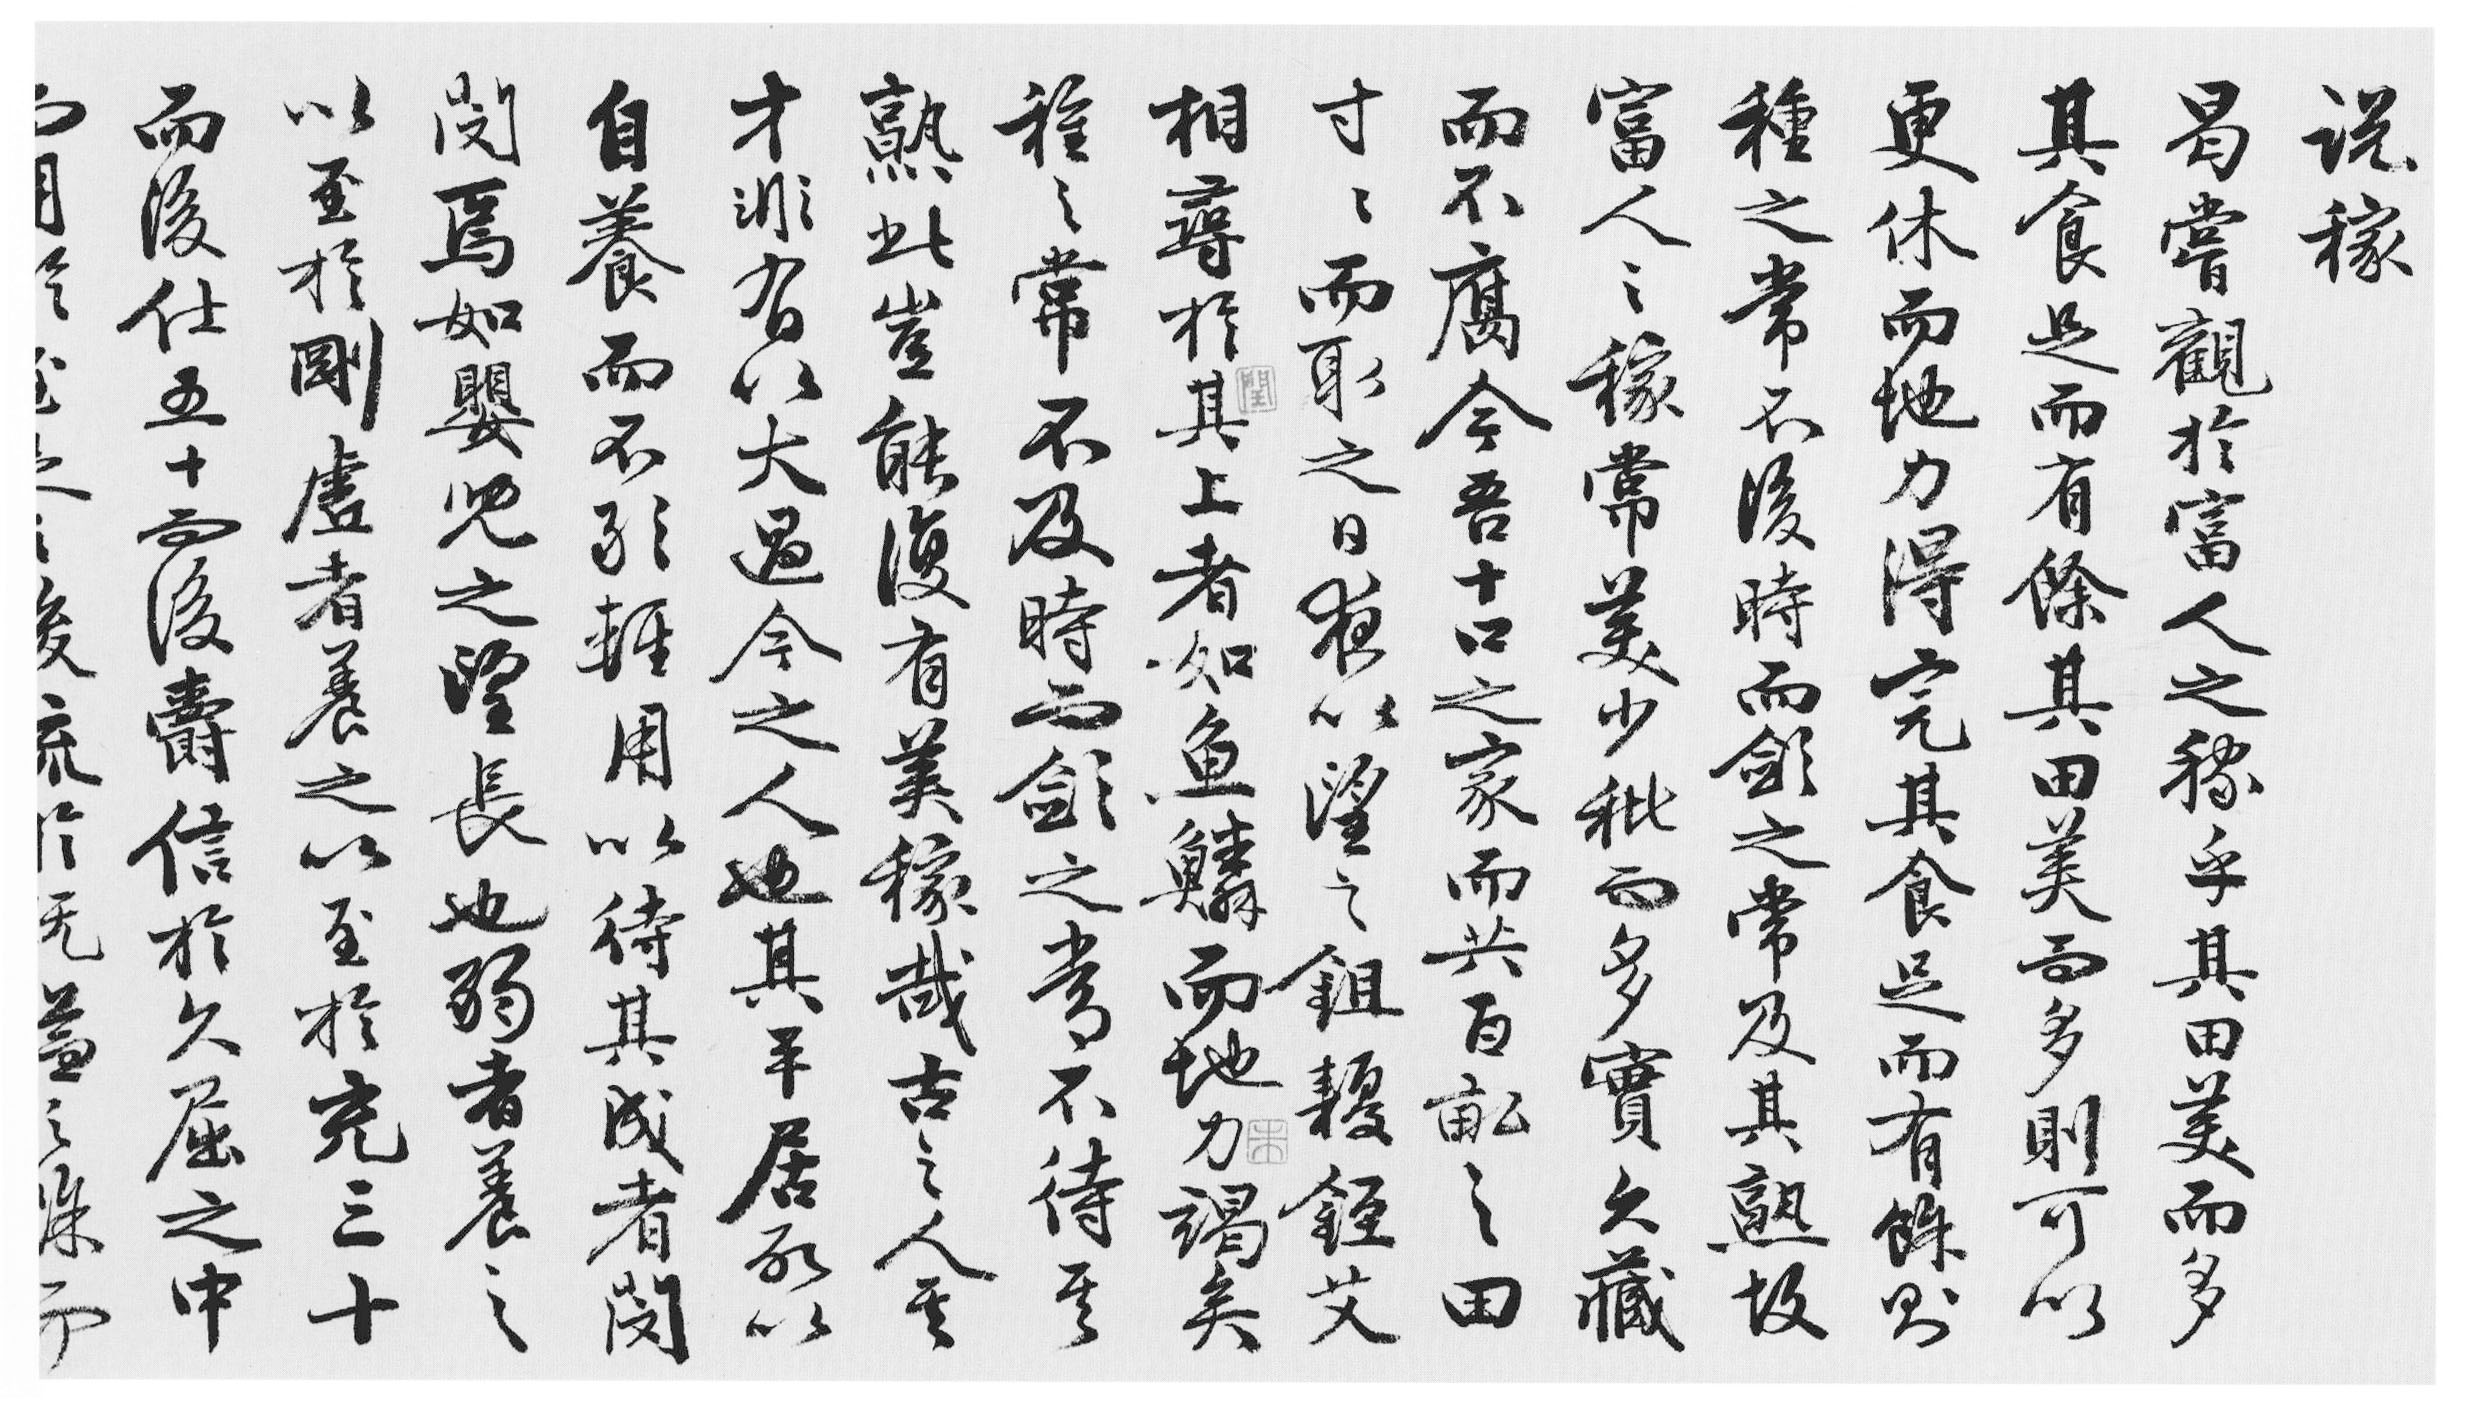 說稼
曷嘗觀於富人之稼乎其田美而多
其食足而有餘其田美而多則可以
更休而地力得完其食足而有餘則
種之常不後時而歛之常及其熟故
富人之稼常美少秕而多實久藏
而不腐今吾十口之家而共百畝之田
寸寸而取之日夜以望之鉏耰銍艾
相尋於其上者如魚鱗而地力竭矣
種之常不及時而歛之常不待其
熟此豈能復有美稼哉古之人其
才非有以大過今之人也其平居所以
自養而不敢輕用以待其成者閔
閔焉如嬰兒之望長也弱者養之
以至於剛虛者養之以至於充三十
而後仕五十而後爵信於久屈之中
而用於至足之後流於既溢之餘而